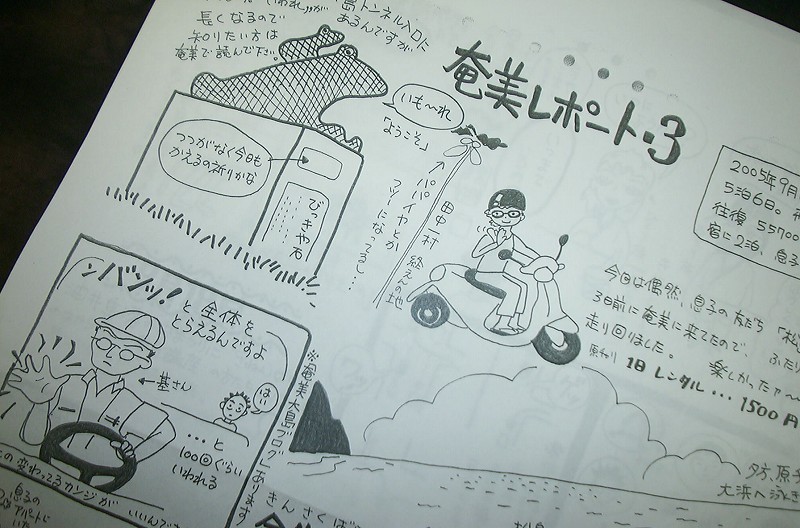 島トンネル入口に
あるんですが、
長くなるので
知りたい方は
奄美で読んで下さい。
奄美レポート・3
いも〜れ
「ようこそ」
パパイヤとか
マンゴーになってるし…
田中一村 終えんの地
つつがなく今日も
かえるの祈りかな
びっきゃ石
2005年9月
5泊6日。
往復 55700
宿に2泊、息子
今回は偶然、息子の友だち「松
3日前に奄美に来てたので ふたり
走り回りました。 楽しかったァ〜
原チャリ 1日 レンタル… 1500円
シバンッ! と 全体を
とらえるんですよ
←基さん
はい
…と
100回ぐらい
いわれる
※奄美大島ブログ
夕方、原チ
大浜へ泳ぎ
変わってるカンジが いいんです
息子の
アパートに